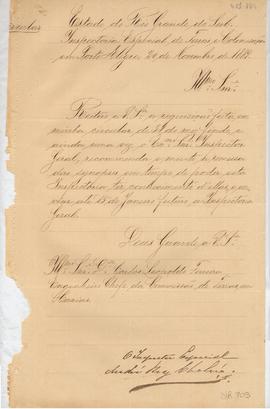 Circular
Estado do Rio Grande do Sul.
Inspectoria Especial de Terras e Colonisação
em Porto Alegre, 20 de Novembro de 1889.
Illmo Snr.
Reitero a V. Sª a requisição feita, em
minha circular de do mez findo, e
ainda uma vez, o Exmo Snr. Inspector
Geral, recommenda a remessa
das synopses em tempo de poder esta
Inspectoria ter conhecimento d'ellas, e en-
vial-as até 15 de Janeiro futuro a Inspectoria
Geral.
Deus Guarde a V. Sª.
Illmo Snr. Dr. Carlos Leopoldo
Engenheiro Chefe da Commissão de Terras em
O Inspector Especial